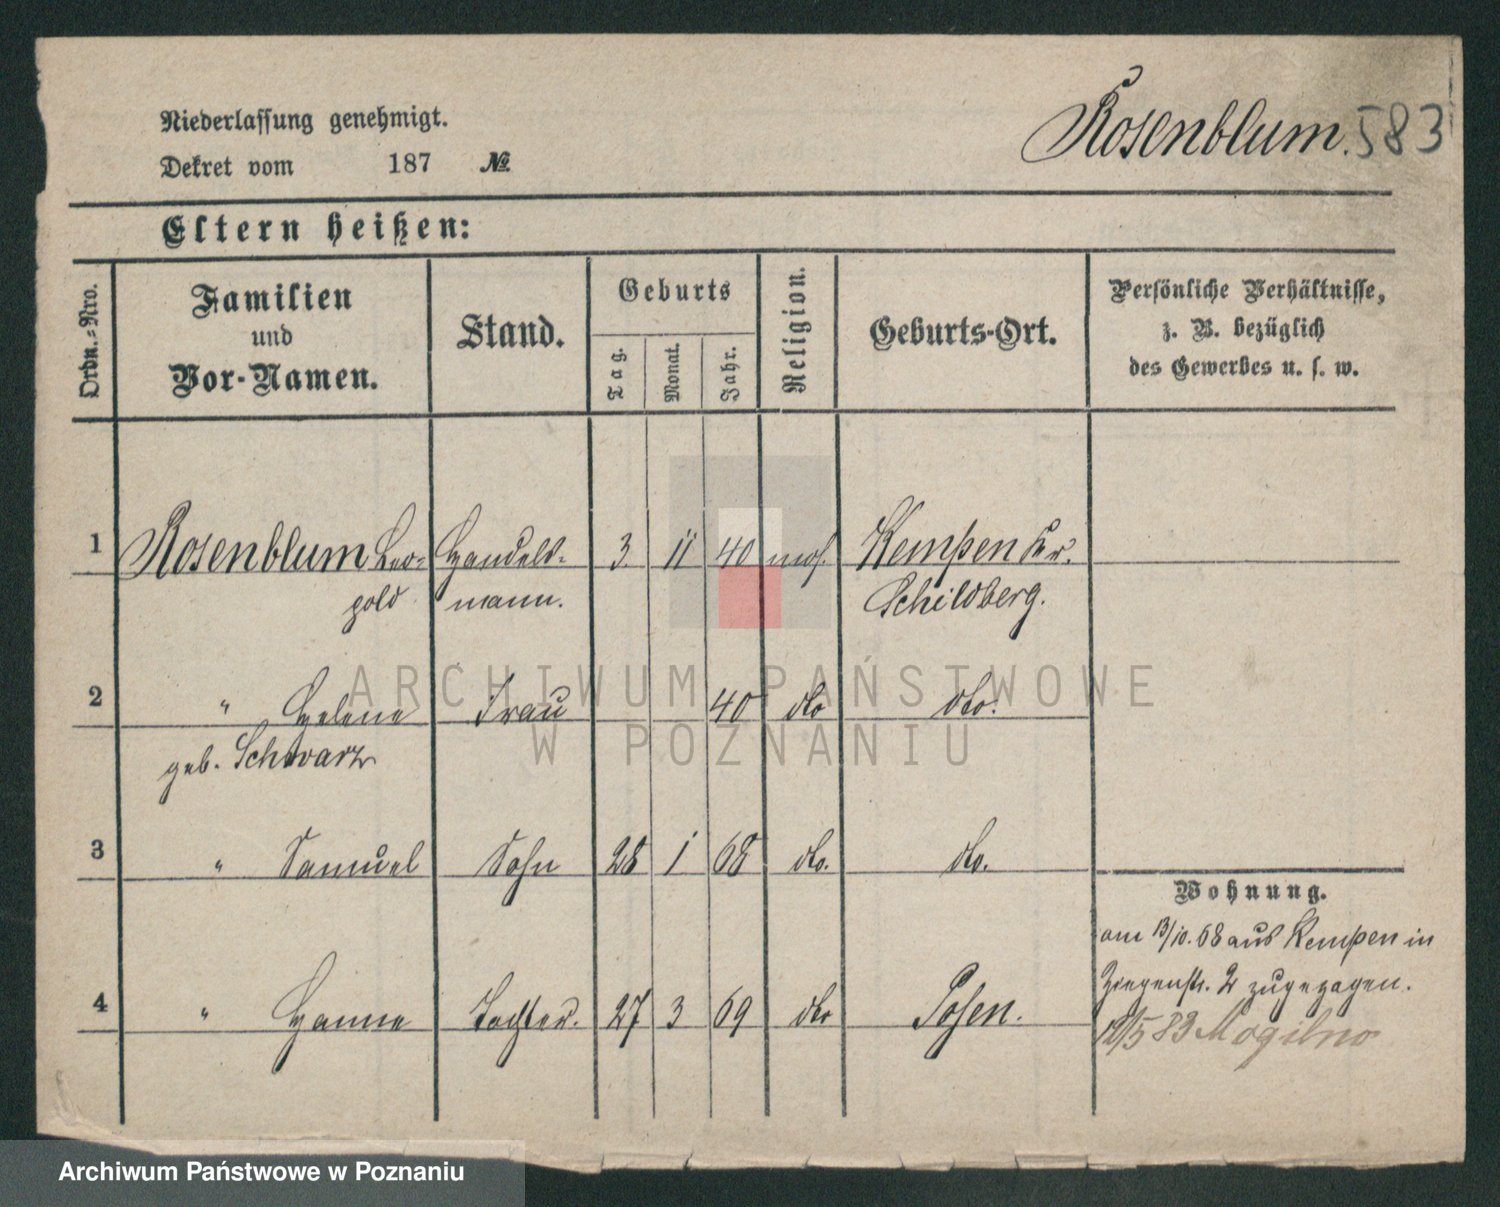 Niederlassung genehmigt.
Dekret vom 187 №
Rosenblum. 583
Eltern heißen:
Ordn.-Nro.
Familien
und
Vor-Namen.
Stand.
Geburts
Tag.
Monat.
Jahr.
Religion.
Geburts-Ort.
Persönliche Verhältnisse,
z. B. bezüglich
des Gewerbes u. s. w.
1 Rosenblum Leo- Handels- 3. 11 40 mos. Kempen Kr.
pold mann. Schildberg.
2 " Helene Frau 40 dto dto.
geb. Schwarz
3 " Samuel Sohn 28 1 68 dto. dto.
Wohnung.
am 13/10. 68 aus Kempen in
Ziegenstr. 2 zugezogen.
4 " Hanne Tochter. 27 3 69 dto Posen.
12/5 83 Mogilno
ARCHIWUM PAŃSTWOWE
W POZNANIU
Archiwum Państwowe w Poznaniu